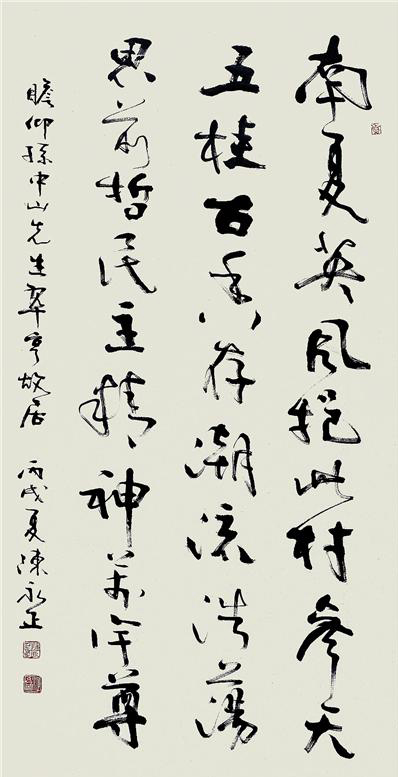 南夏英風挹此村參天
五桂古香存潮流浩蕩
思前哲民主精神萬宇尊
瞻仰孫中山先生翠亨故居 丙戌夏陳永正